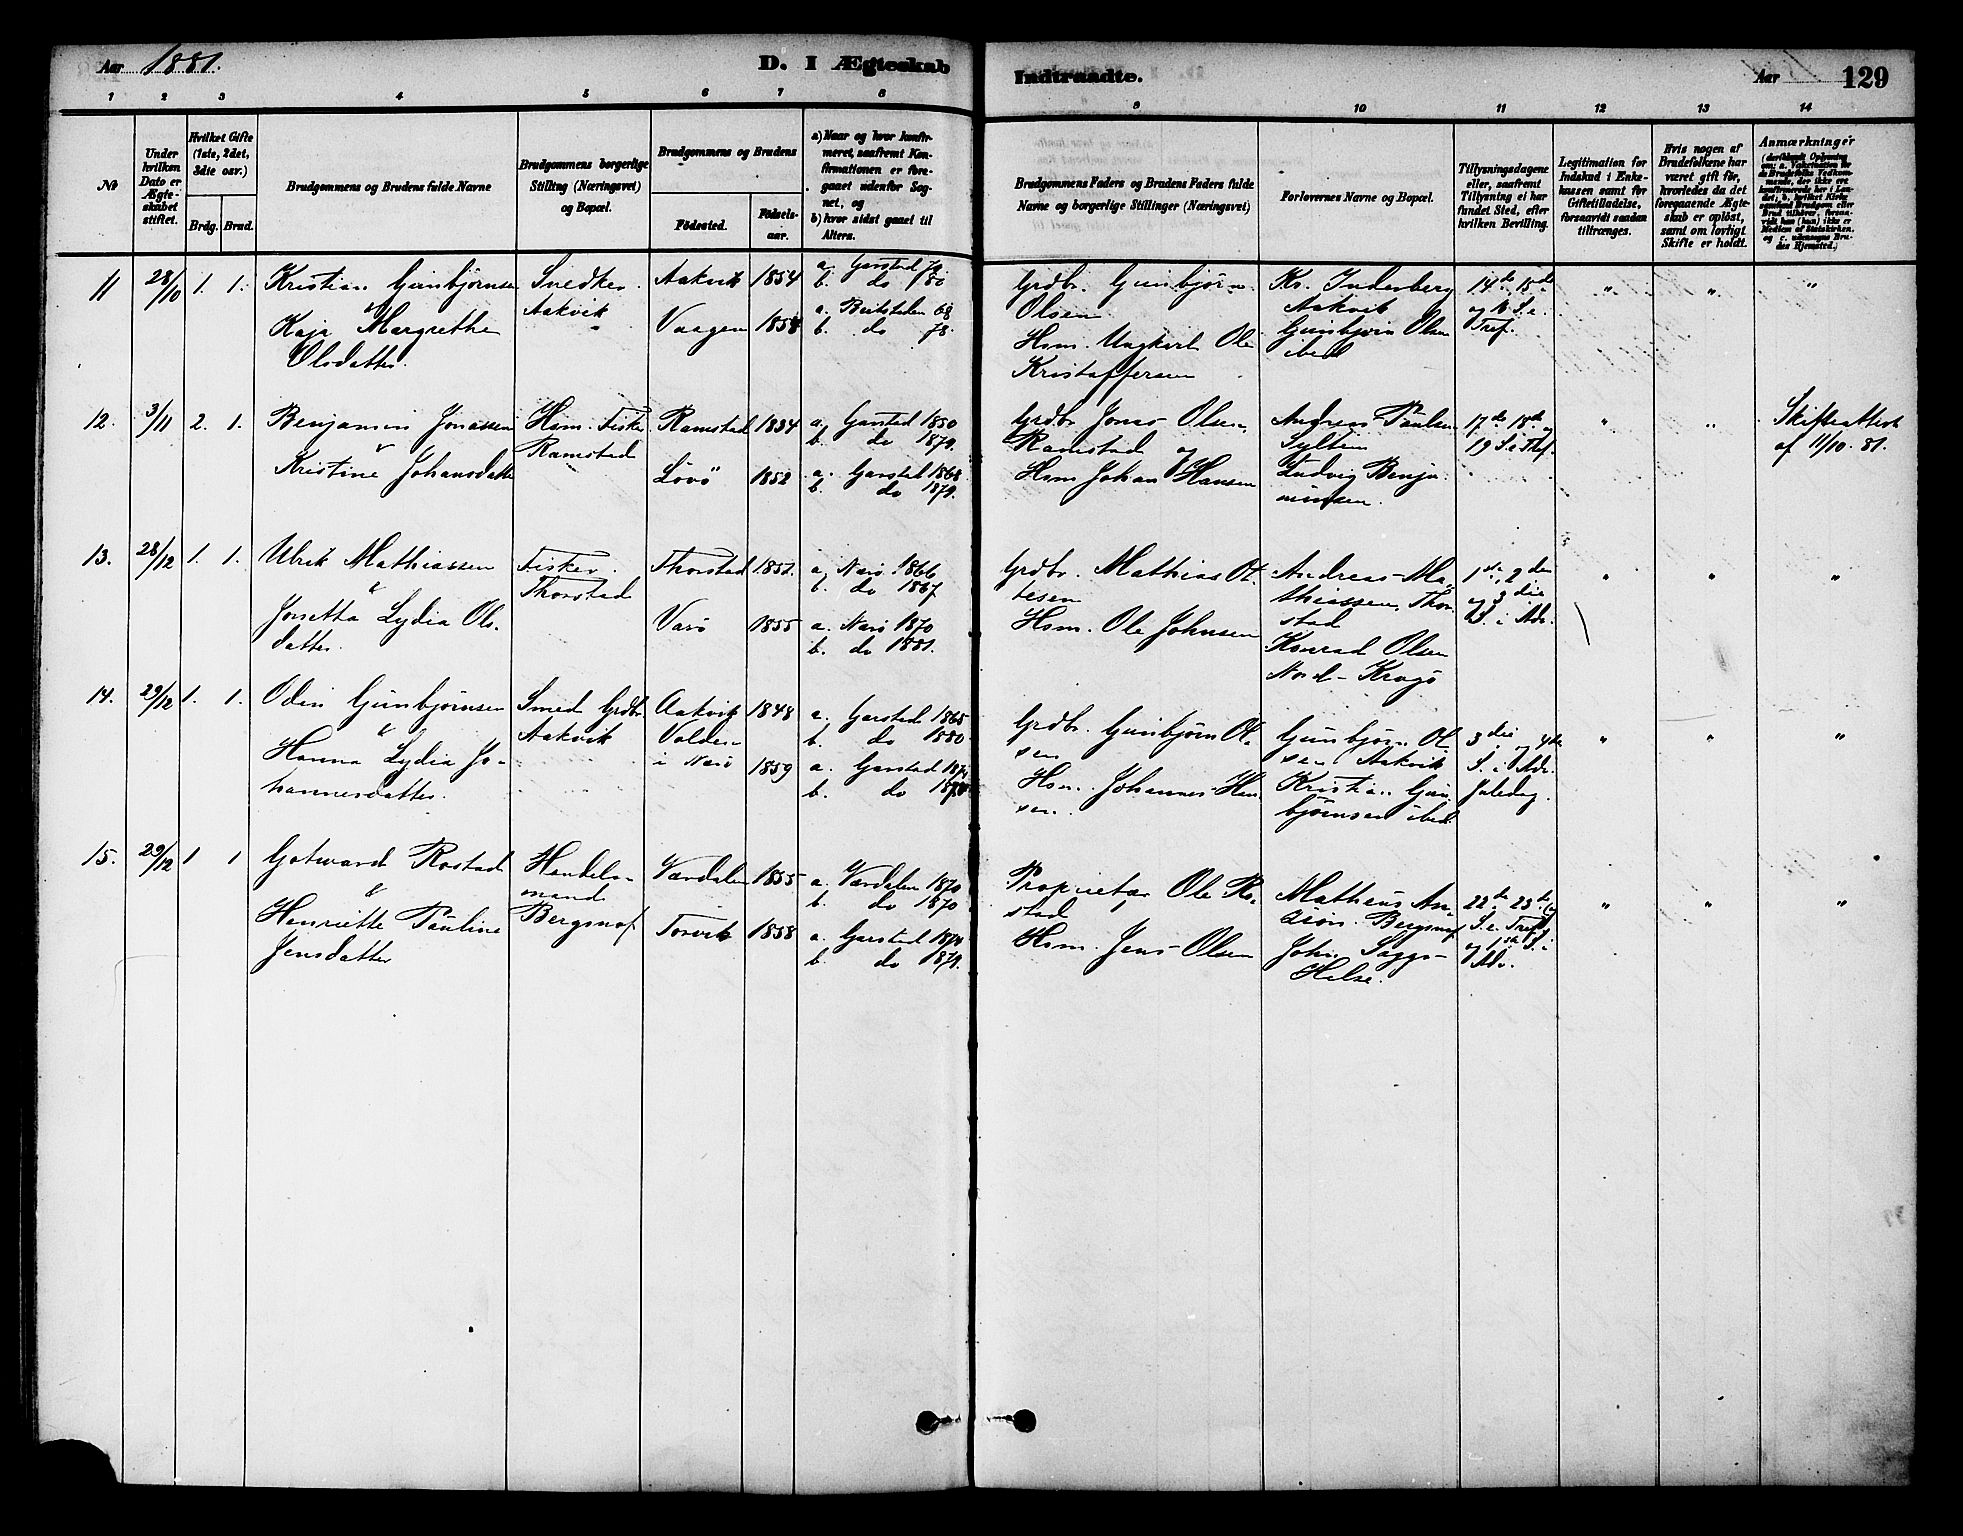 Aar 1881.
D. I Ægteskab
Indtraadte.
Aar 129
1 2 3 4 5 6 7 8 9 10 11 12 13 14
No
Under hvilken Dato er Ægteskabet stiftet.
Hvilket Gifte (1ste, 2det, 3die osv.)
Brdg. Brud.
Brudgommens og Brudens fulde Navne
Brudgommens borgerlige Stilling (Næringsvei) og Bopæl.
Brudgommens og Brudens
Fødested.
Fødselsaar.
a) Naar og hvor konfirmeret, saafremt Konfirmationen er foregaaet udenfor Sognet, og
b) hvor sidst gaaet til Alters.
Brudgommens Faders og Brudens Faders fulde Navne og borgerlige Stillinger (Næringsvei)
Forlovernes Navne og Bopæl.
Tillysningsdagene eller, saafremt Tillysning ei har fundet Sted, efter hvilken Bevilling.
Legitimation for Indskud i Enkekassen samt for Giftetilladelse, forsaavidt saadan tiltrænges.
Hvis nogen af Brudefolkene har været gift før, hvorledes da det foregaaende Ægteskab er opløst, samt om lovligt Skifte er holdt.
Anmærkninger
11 28/10 1. 1.
Kristian Gunbjørnsen
&
Kaja Margrethe
Olsdatter.
Snedker
Aakvik
Aakvik 1854
Vaagen 1858
a. Garstad
b. do 80
a. Beitstaden 68
b. do 78.
Grdbr. Gunbjørn
Olsen
Hsm. Ole
Kristoffersen
Kr. Inderberg
Aakvik
Gunbjørn Olsen
ibed
14de 15de
og S. e.
Tref.
" " "
12. 3/11 2. 1.
Benjamin Jonassen
&
Kristine Johansdatter
Hsm. Fisker
Ramstad
Ramstad 1834
Lövö 1852
a. Garstad 1850
b. do 1879.
a. Garstad 1868
b. do 1879.
Grdbr Jonas Olsen
Ramstad og
Hsm Johan Hansen
Andreas Paulsen
Sylten
Ludvig Benja
minsen.
17de 18de og
19 S. e Tref.
" "
Skifteattest
af 11/10. 81.
13. 28/12 1. 1.
Ulrik Mathiassen
&
Josetta Lydia Ols
datter.
Fisker.
Thorstad
Thorstad 1851.
Varö 1855
a. Nærö 1866
b. do 1867
a. Nærö 1870
b. do 1881.
Grdbr. Mathias Ot
tesen
Hsm. Ole Johnsen
Andreas Ma
thiassen, Thor
stad
Konrad Olsen
Nord-Krogö
1ste, 2den
og 3die
S. i Adv.
" " "
14. 29/12 1. 1.
Odin Gunbjørnsen
&
Hanna Lydia Jo-
hannesdatter.
Smed Grdbr.
Aakvik
Aakvik 1848
Volden
i Nærö 1859
a. Garstad 1865
b. do 1880
a. Garstad
b. do
Grdbr. Gunbjørn Ol
sen
Hsm. Johannes Han
sen.
Gunbjørn Ol
sen Aakvik
Kristian Gun
bjørnsen ibed.
3die og 4de
S. i Adv.
Juledag.
" " "
15. 29/12 1 1
Gotward Rostad
&
Henriette Pauline
Jensdatter
Handels-
mand
Bergsnof
Værdalen 1855
Torvik 1858
a. Værdalen 1870
b. do 1870
a. Garstad 1874
b. do 1879.
Proprietær Ole Ro-
stad
Hsm. Jens Olsen
Mathæus An
zion. Bergsnof
John Saggo-
Helse.
22de 23de
S. e. Tref
og 1ste S. i
Adv.
" " "